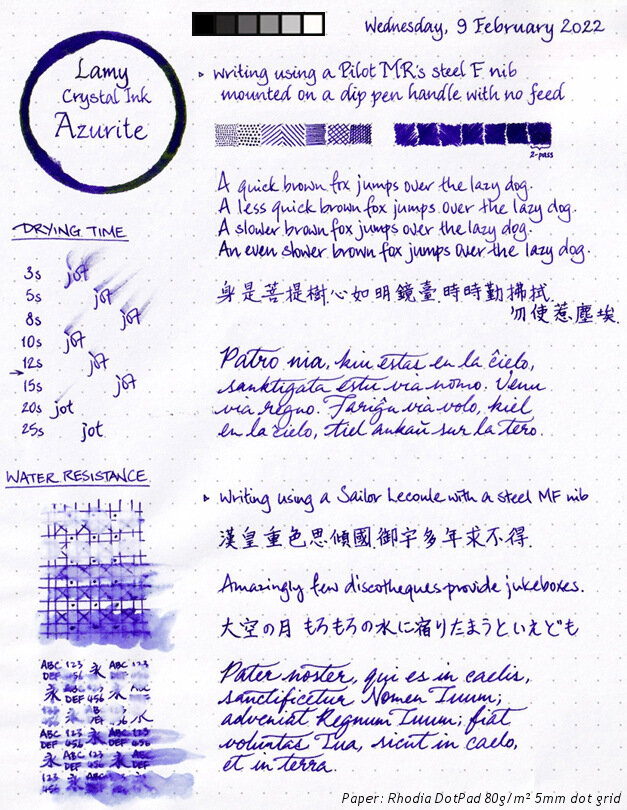 Wednesday, 9 February 2022
Lamy
Crystal Ink
Azurite
▸ Writing using a Pilot MR's steel F nib
mounted on a dip pen handle with no feed
2-pass
A quick brown fox jumps over the lazy dog.
A less quick brown fox jumps over the lazy dog.
A slower brown fox jumps over the lazy dog.
An even slower brown fox jumps over the lazy dog.
身是菩提樹 心如明鏡臺 時時勤拂拭
勿使惹塵埃
Patro nia, kiu estas en la ĉielo,
sanktigata estu via nomo. Venu
via regno. Fariĝu via volo, kiel
en la ĉielo, tiel ankaŭ sur la tero.
DRYING TIME
3s jot
5s jot
8s jot
10s jot
12s jot
→
15s jot
20s jot
25s jot
WATER RESISTANCE
▸ Writing using a Sailor Lecoule with a steel MF nib
漢皇重色思傾國 御宇多年求不得
Amazingly few discotheques provide jukeboxes.
大空の月 もろもろの水に宿りたまうといえども
Pater noster, qui es in caelis,
sanctificetur Nomen Tuum;
adveniat Regnum Tuum; fiat
voluntas Tua, sicut in caelo,
et in terra.
ABC 123 永 ABC 123
DEF 456 DEF 456
永 ABC 123 永 ABC
DEF 456 DEF
123 永 ABC 123 永
456
ABC 123 永 ABC 123
DEF 456 DEF 456
永 ABC 123 永 ABC
DEF 456 DEF
Paper: Rhodia DotPad 80g/m² 5mm dot grid